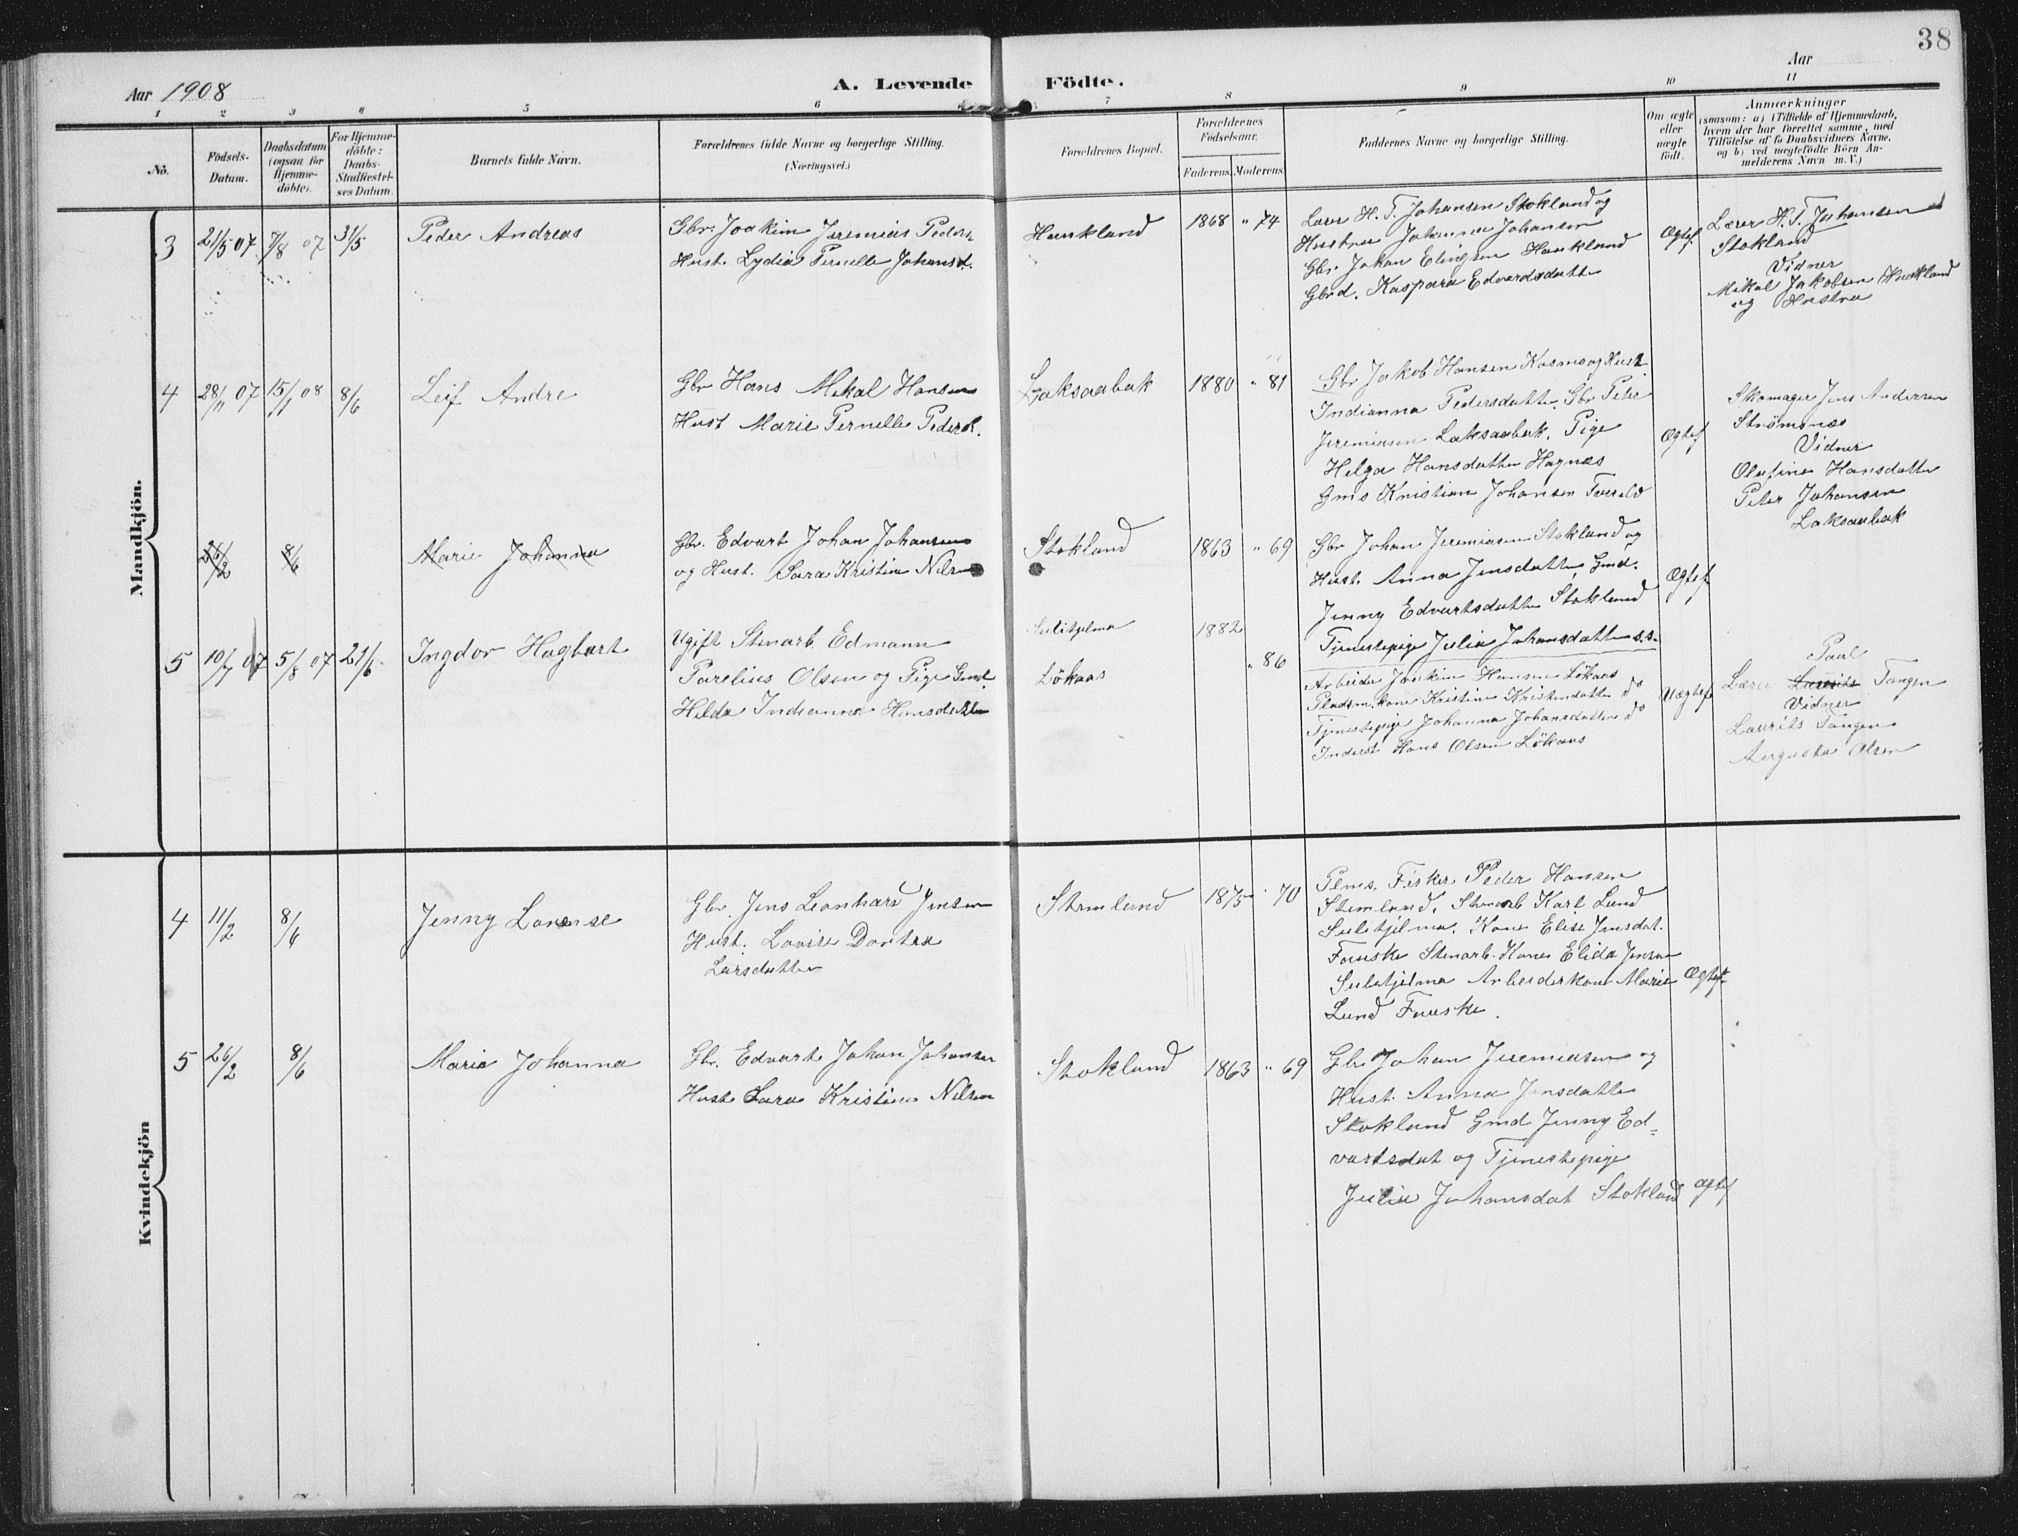 38
Aar 1908
A. Levende Födte.
Aar
1 2 3 " 5 6 7 8 9 10 11
No.
Födsels-Datum.
Daabsdatum (ogsaa for Hjemme-döbte).
For Hjemme-döbte: Daabs-Stadfæstel-ses Datum.
Barnets fulde Navn.
Forældrenes fulde Navne og borgerlige Stilling.
(Næringsvei.)
Forældrenes Bopæl.
Forældrenes Födselsaar.
Faderens. Moderens.
Faddernes Navne og borgerlige Stilling.
Om ægte eller uægte födt.
Anmærkninger
(saasom: a) i Tilfælde af Hjemmedaab,
hvem der har forrettet samme, med
Tilföielse af to Daabsvidners Navne,
og b) ved uægtefödte Börn An-
melderens Navn m. V.)
Mandkjön.
3 21/5 07 7/8 07 31/5 Peder Andreas
Gbr. Joakim Jeremias Peders.
Hust. Lydia Pernelle Johansd.
Haukland 1868 " 74
Lærer H. T. Johansen Stokland og
Hustru Johanna Johansen
Gbr. Johan Elingsen Haukland
Gbrd. Kaspara Edvardsdatter
Ægtef
Lærer H. T. Johansen
Stokland
Vidner
Mikal Jakobsen Haukland
og Hustru
4 28/11 07 15/1 08 8/6 Leif Andre
Gbr Hans Mikal Hansen
Hust Marie Pernelle Pedersd.
Laksaabak 1880 " 81
Gbr Jakob Hansen Kosmo og Hust
Indianna Pedersdatter. Gbr Peter
Jeremiasen Laksaabak. Pige
Helga Hansdatter Hagnæs
Gms Kristian Johansen
Ægtef
Skomager Jens Andersen
Strömsnæs
Vidner
Olufine Hansdatter
Peter Johansen
Laksaabak
26/2 8/6 Marie Johanna
Gbr. Edvart Johan Johansen
og Hust. Sara Kristine Nilsen
Stokland 1863 " 69
Gbr Johan Jeremiasen Stokland og
Hust. Anna Jensdatter, Gmd.
Jenny Edvartsdatter Stokland
Tjenestepige Julia Johansdatter s.s.
Ægtef
5 10/7 07 5/8 07 21/6 Ingdor Hagbart
Ugift Stenarb. Edmann
Parelius Olsen og Pige Gmd.
Hilda Indianna Hansdatter
Sulitjelma 1882
Lökaas " 86
Arbeider Joakim Hansen Lökaas
Pladsm.kone Kristine Kristensdatter do
Tjenestepige Johanna Johansdatter do
Inderst Hans Olsen Lökaas
Uægtef
Paul
Lærer Laurits Tangen
Vidner
Laurits Tangen
Augusta Olsen
Kvindekjön
4 11/2 8/6 Jenny Lovense
Gbr. Jens Leonhard Jensen
Hust. Lovise Dortea
Larsdatter
Stemland 1875 " 70
Plms. Fisker Peder Hansen
Stemland, Stenarb Karl Lund
Sulitjelma. Kone Elise Jensdat.
Fauske Stenarb. Kone Elida Jensen
Sulitjelma Arbeiderkone Marie
Lund Fauske.
Ægtef.
5 26/2 8/6 Marie Johanna
Gbr. Edvart Johan Johansen
Hust Sara Kristine Nilsen
Stokland 1863 " 69
Gbr Johan Jeremiasen og
Hust. Anna Jensdatter
Stokland Gmd Jenny Ed=
vartsdat og Tjenestepige
Julie Johansdat Stokland
Ægtef